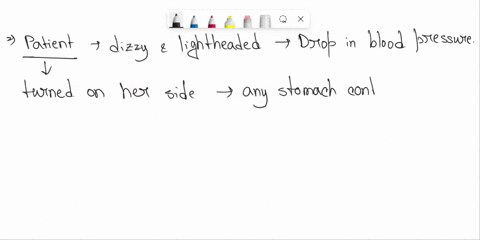 2) Patient → dizzy & lightheaded → Drop in blood pressure.
↓
turned on her side → any stomach cont